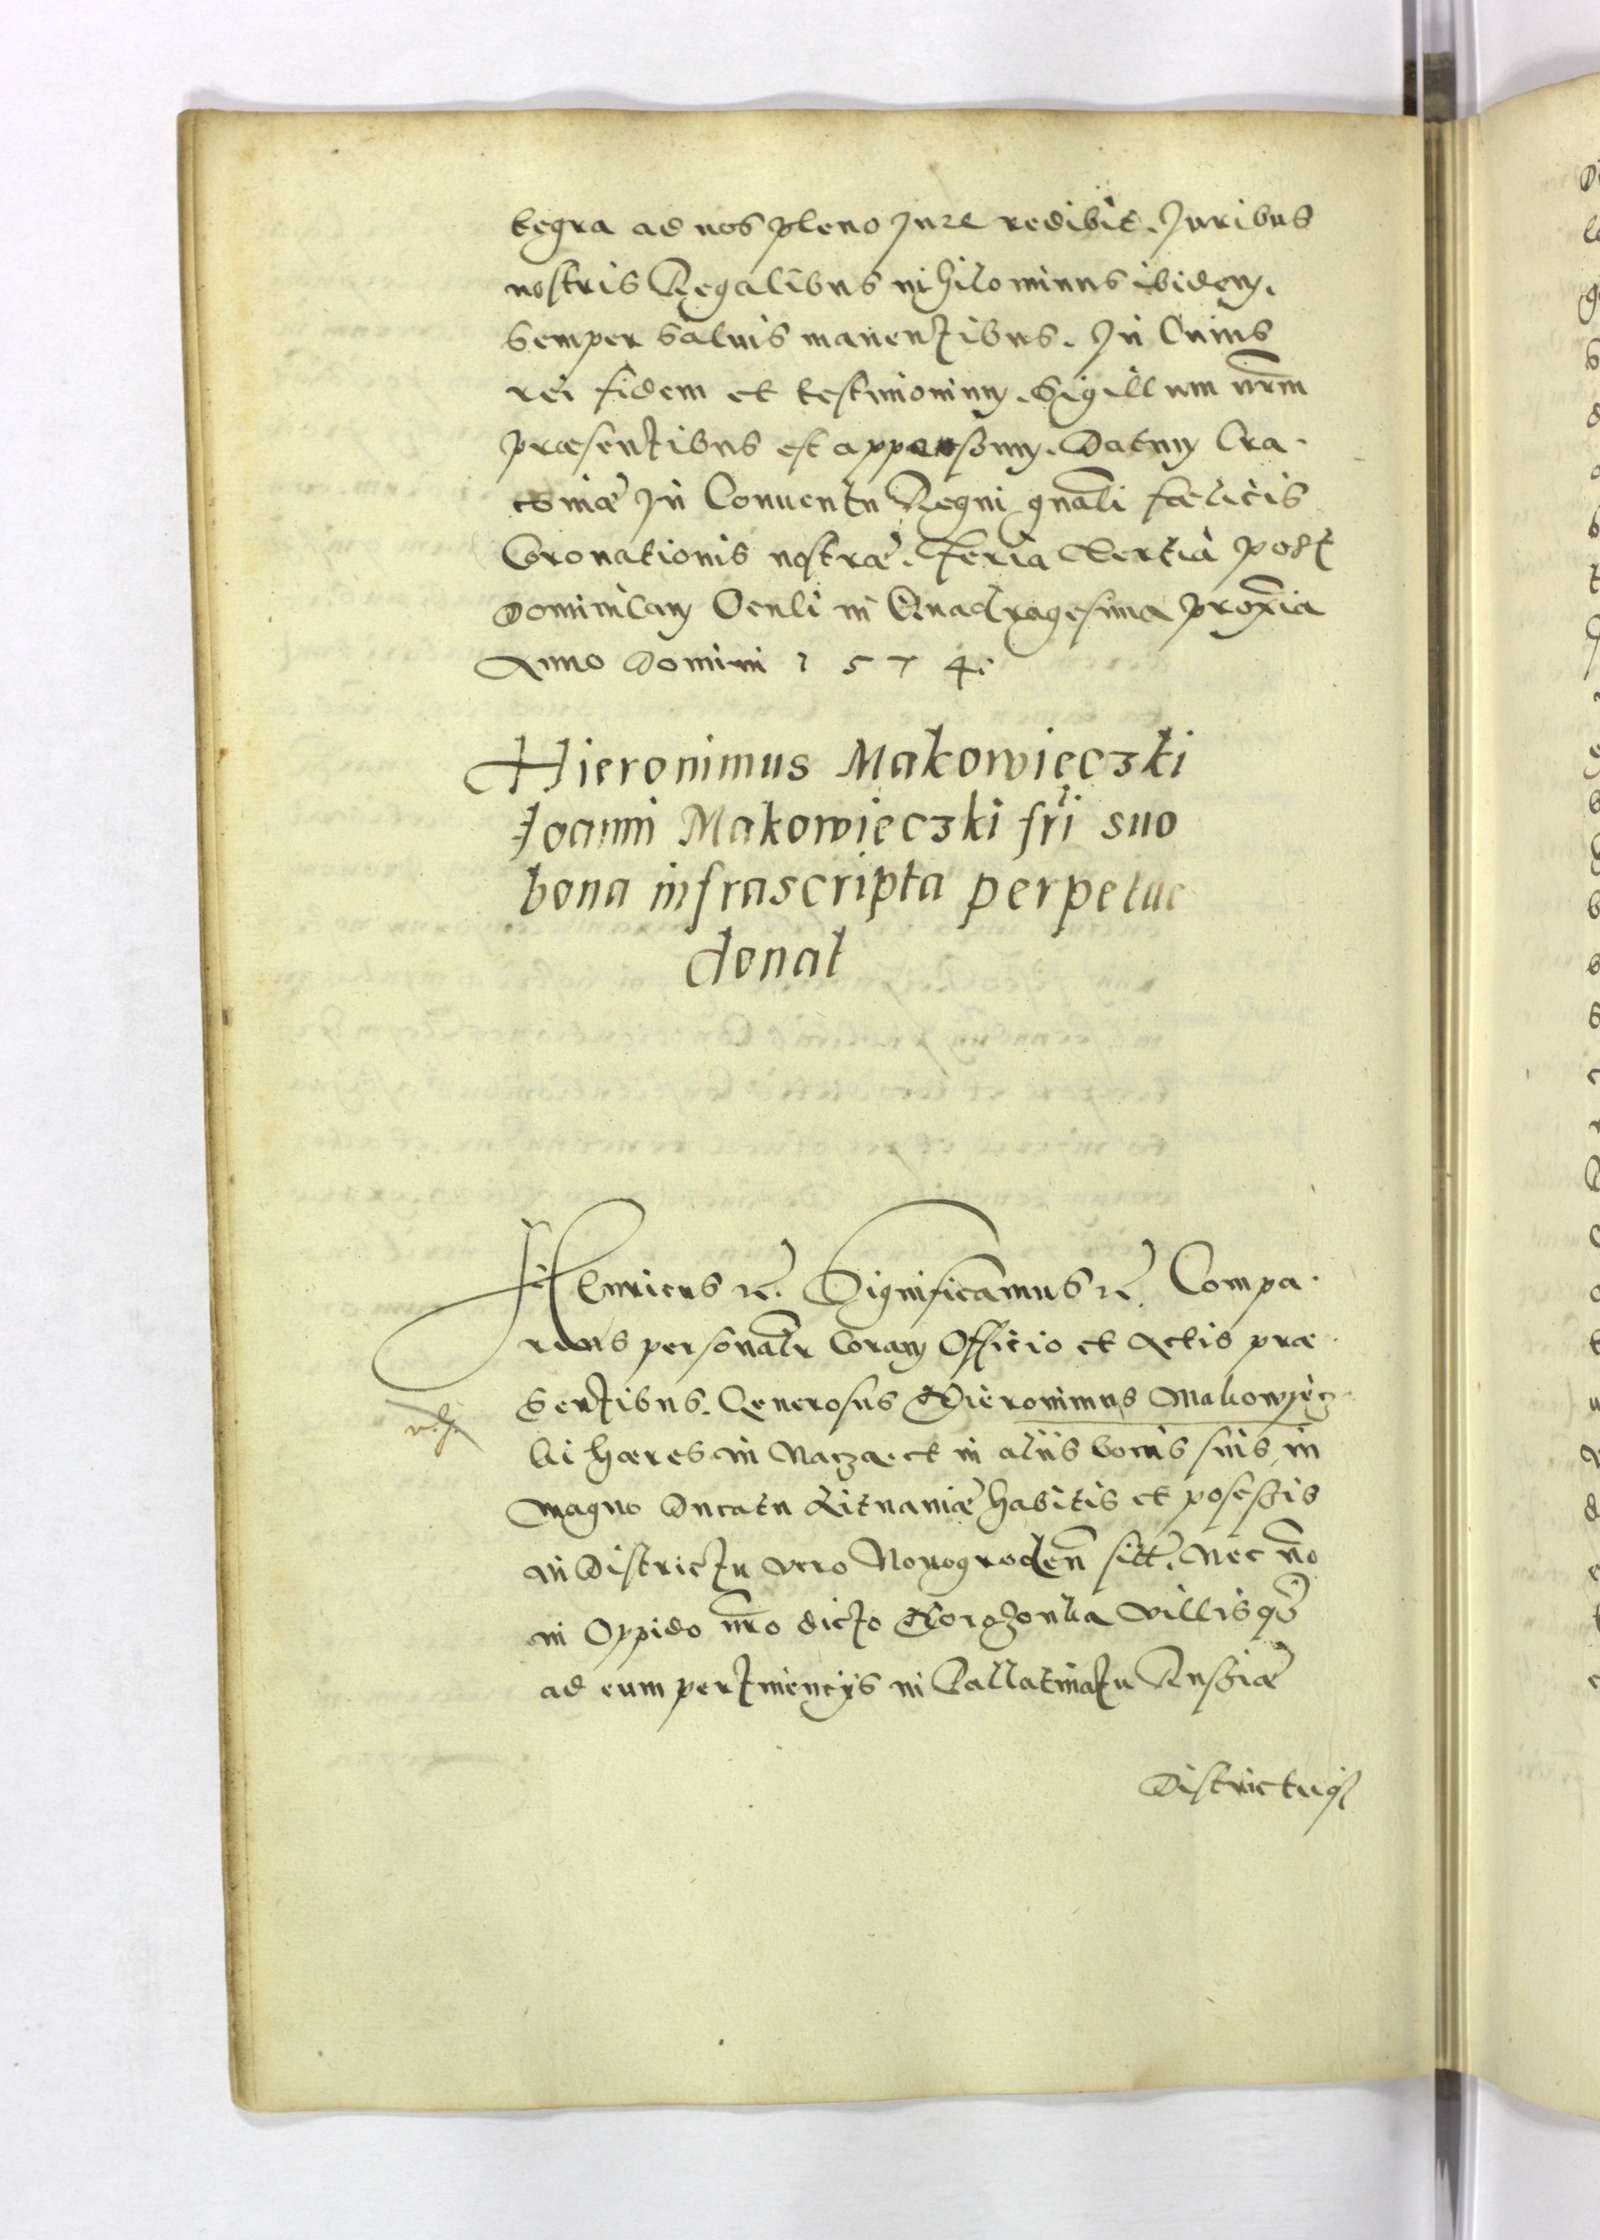 tegra ad nos pleno jure redibit. Juribus
nostris Regalibus nihilominus ibidem.
semper salvis manentibus. In Cuius
rei fidem et testimonium. Sigillum nrm̄
præsentibus est appensum. Datum Cra-
coviæ In Conventu Regni gnāli fœlicis
Coronationis nostræ. Feria Tertia post
Dominicam Oculi in Quadragesima proxīa
Anno Domini 1574.
Hieronimus Makowięczki
Joanni Makowieczki frī suo
bona infrascripta perpetue
donat
Henricus etc. Significamus etc. Compa-
rens personalr̄ Coram Officio et Actis præ-
sentibus. Generosus Hieronimus Makowięcz-
ki hæres in Nacza. et in aliis bonis suis in
Magno Ducatu Litvaniæ habitis et posessis
in Districtu vero Novogrodeñ sitt̄. Nec no̅
in Oppido nr̄o dicto villisqꝫ
ad eum pertinencijs in Pallatinatu Russiæ
Districtuqꝫ